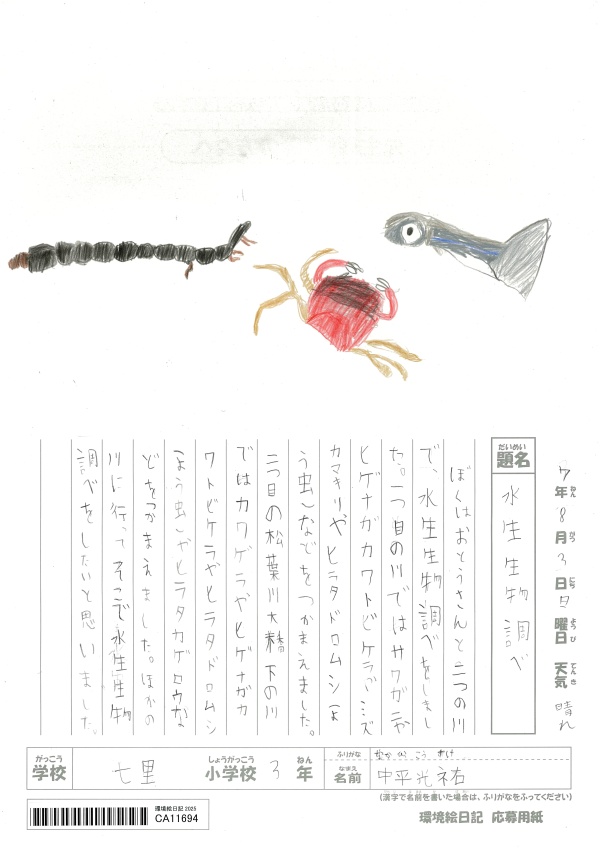 7年8月3日日曜日 天気 晴れ
ねん がつ にち ようび てんき
だいめい
題名 水生生物調べ
ぼくはおとうさんと二つの川
で、水生生物調べをしまし
た。一つ目の川ではサワガニや
ヒゲナガカワトビケラ、ミズ
カマキリや ヒラタドロムシ よ
う虫などをつかまえました。
二つ目の松葉川大橋下の川
ではカワゲラやヒゲナガカ
ワトビケラやヒラタドロムシ
よう虫やヒラタカゲロウな
どをつかまえました。ほかの
川に行ってそこで水生生物
調べをしたいと思いました。
がっこう しょうがっこう ねん ふりがな なか ひら こう すけ
学校 七里 小学校 3年 なまえ 名前 中平光祐
(漢字で名前を書いた場合は、ふりがなをふってください)
環境絵日記 2025
CA11694
環境絵日記 応募用紙